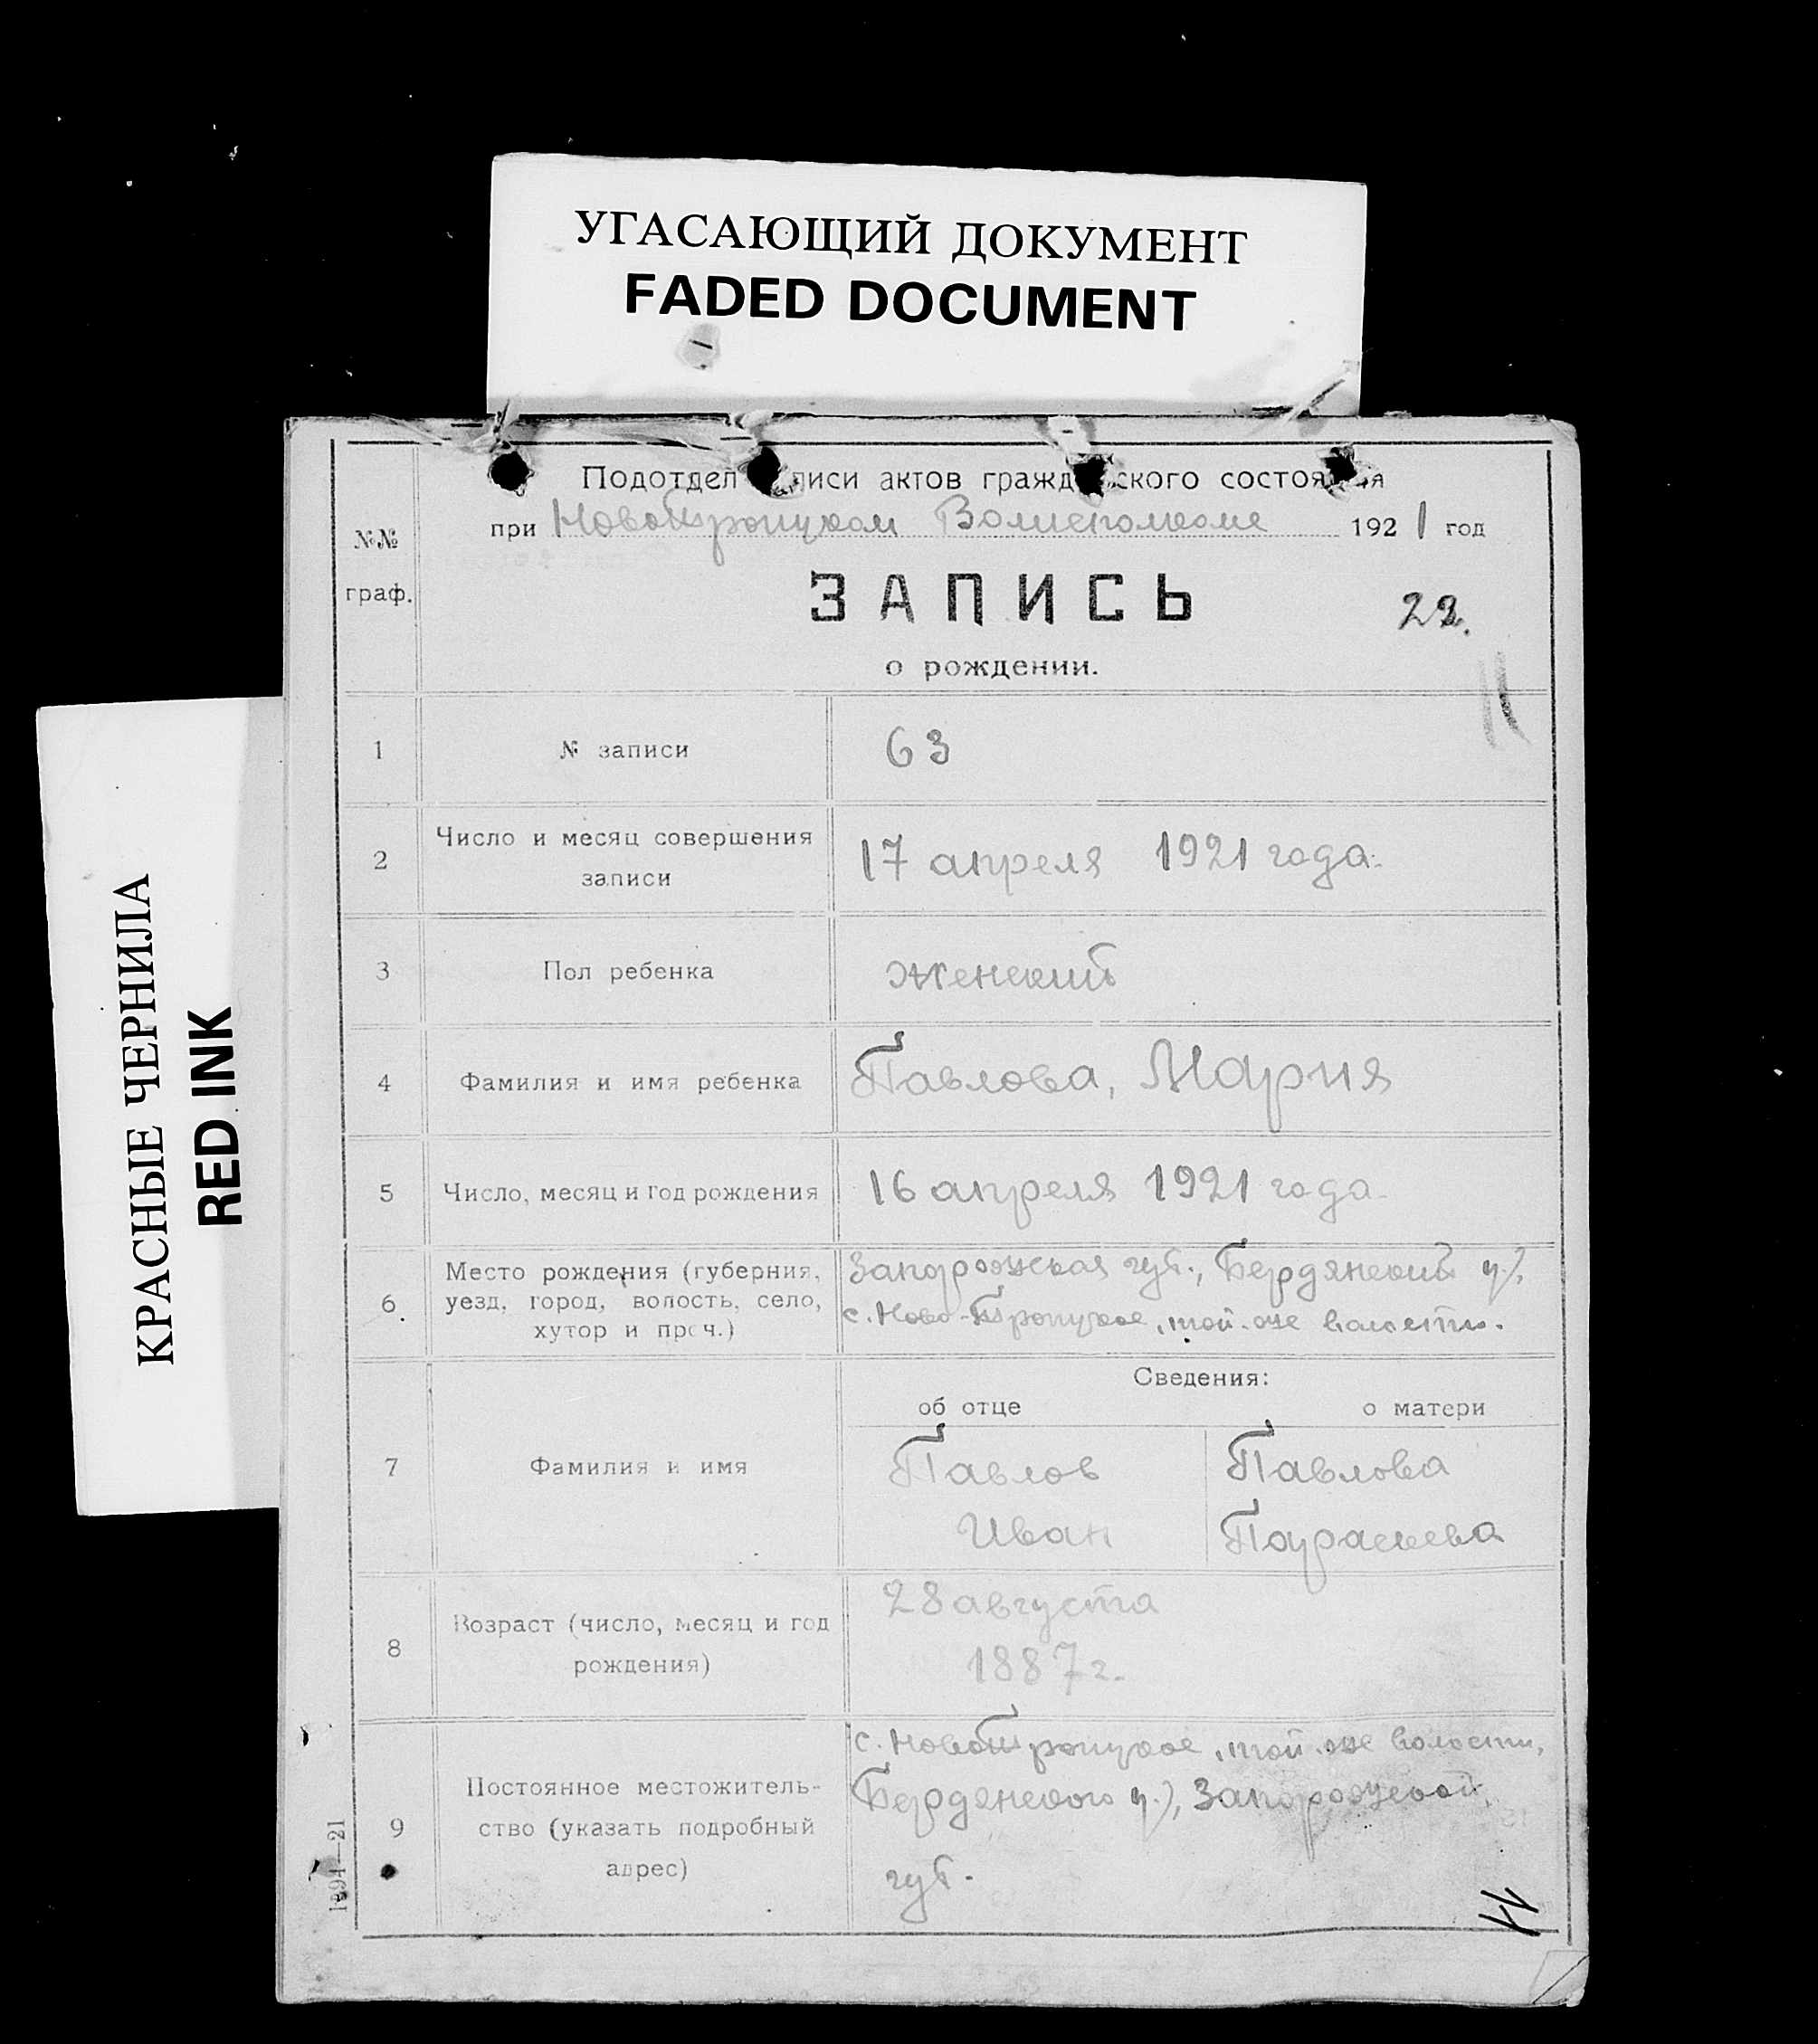 УГАСАЮЩИЙ ДОКУМЕНТ
FADED DOCUMENT
КРАСНЫЕ ЧЕРНИЛА
RED INK
Подотдел писи актов гражд ского состоя я
при Новотроицком Волисполкоме 1921 год
№№
граф.
ЗАПИСЬ
22.
о рождении.
1 № записи 63
2 Число и месяц совершения
записи
17 апреля 1921 года.
3 Пол ребенка женский
4 Фамилия и имя ребенка Павлова, Мария
5 Число, месяц и год рождения 16 апреля 1921 года
6. Место рождения (губерния,
уезд, город, волость, село,
хутор и проч.)
Запорожская губ., Бердянский у.,
с. Ново-Троицкое, той-же волости.
Сведения:
об отце о матери
7 Фамилия и имя
Павлов Павлова
Иван Параскева
8 Возраст (число, месяц и год
рождения)
28 августа
1887 г.
9 Постоянное местожитель-
ство (указать подробный
адрес)
с. Новотроицкое, той же волости,
Бердянского у., Запорожской
губ.